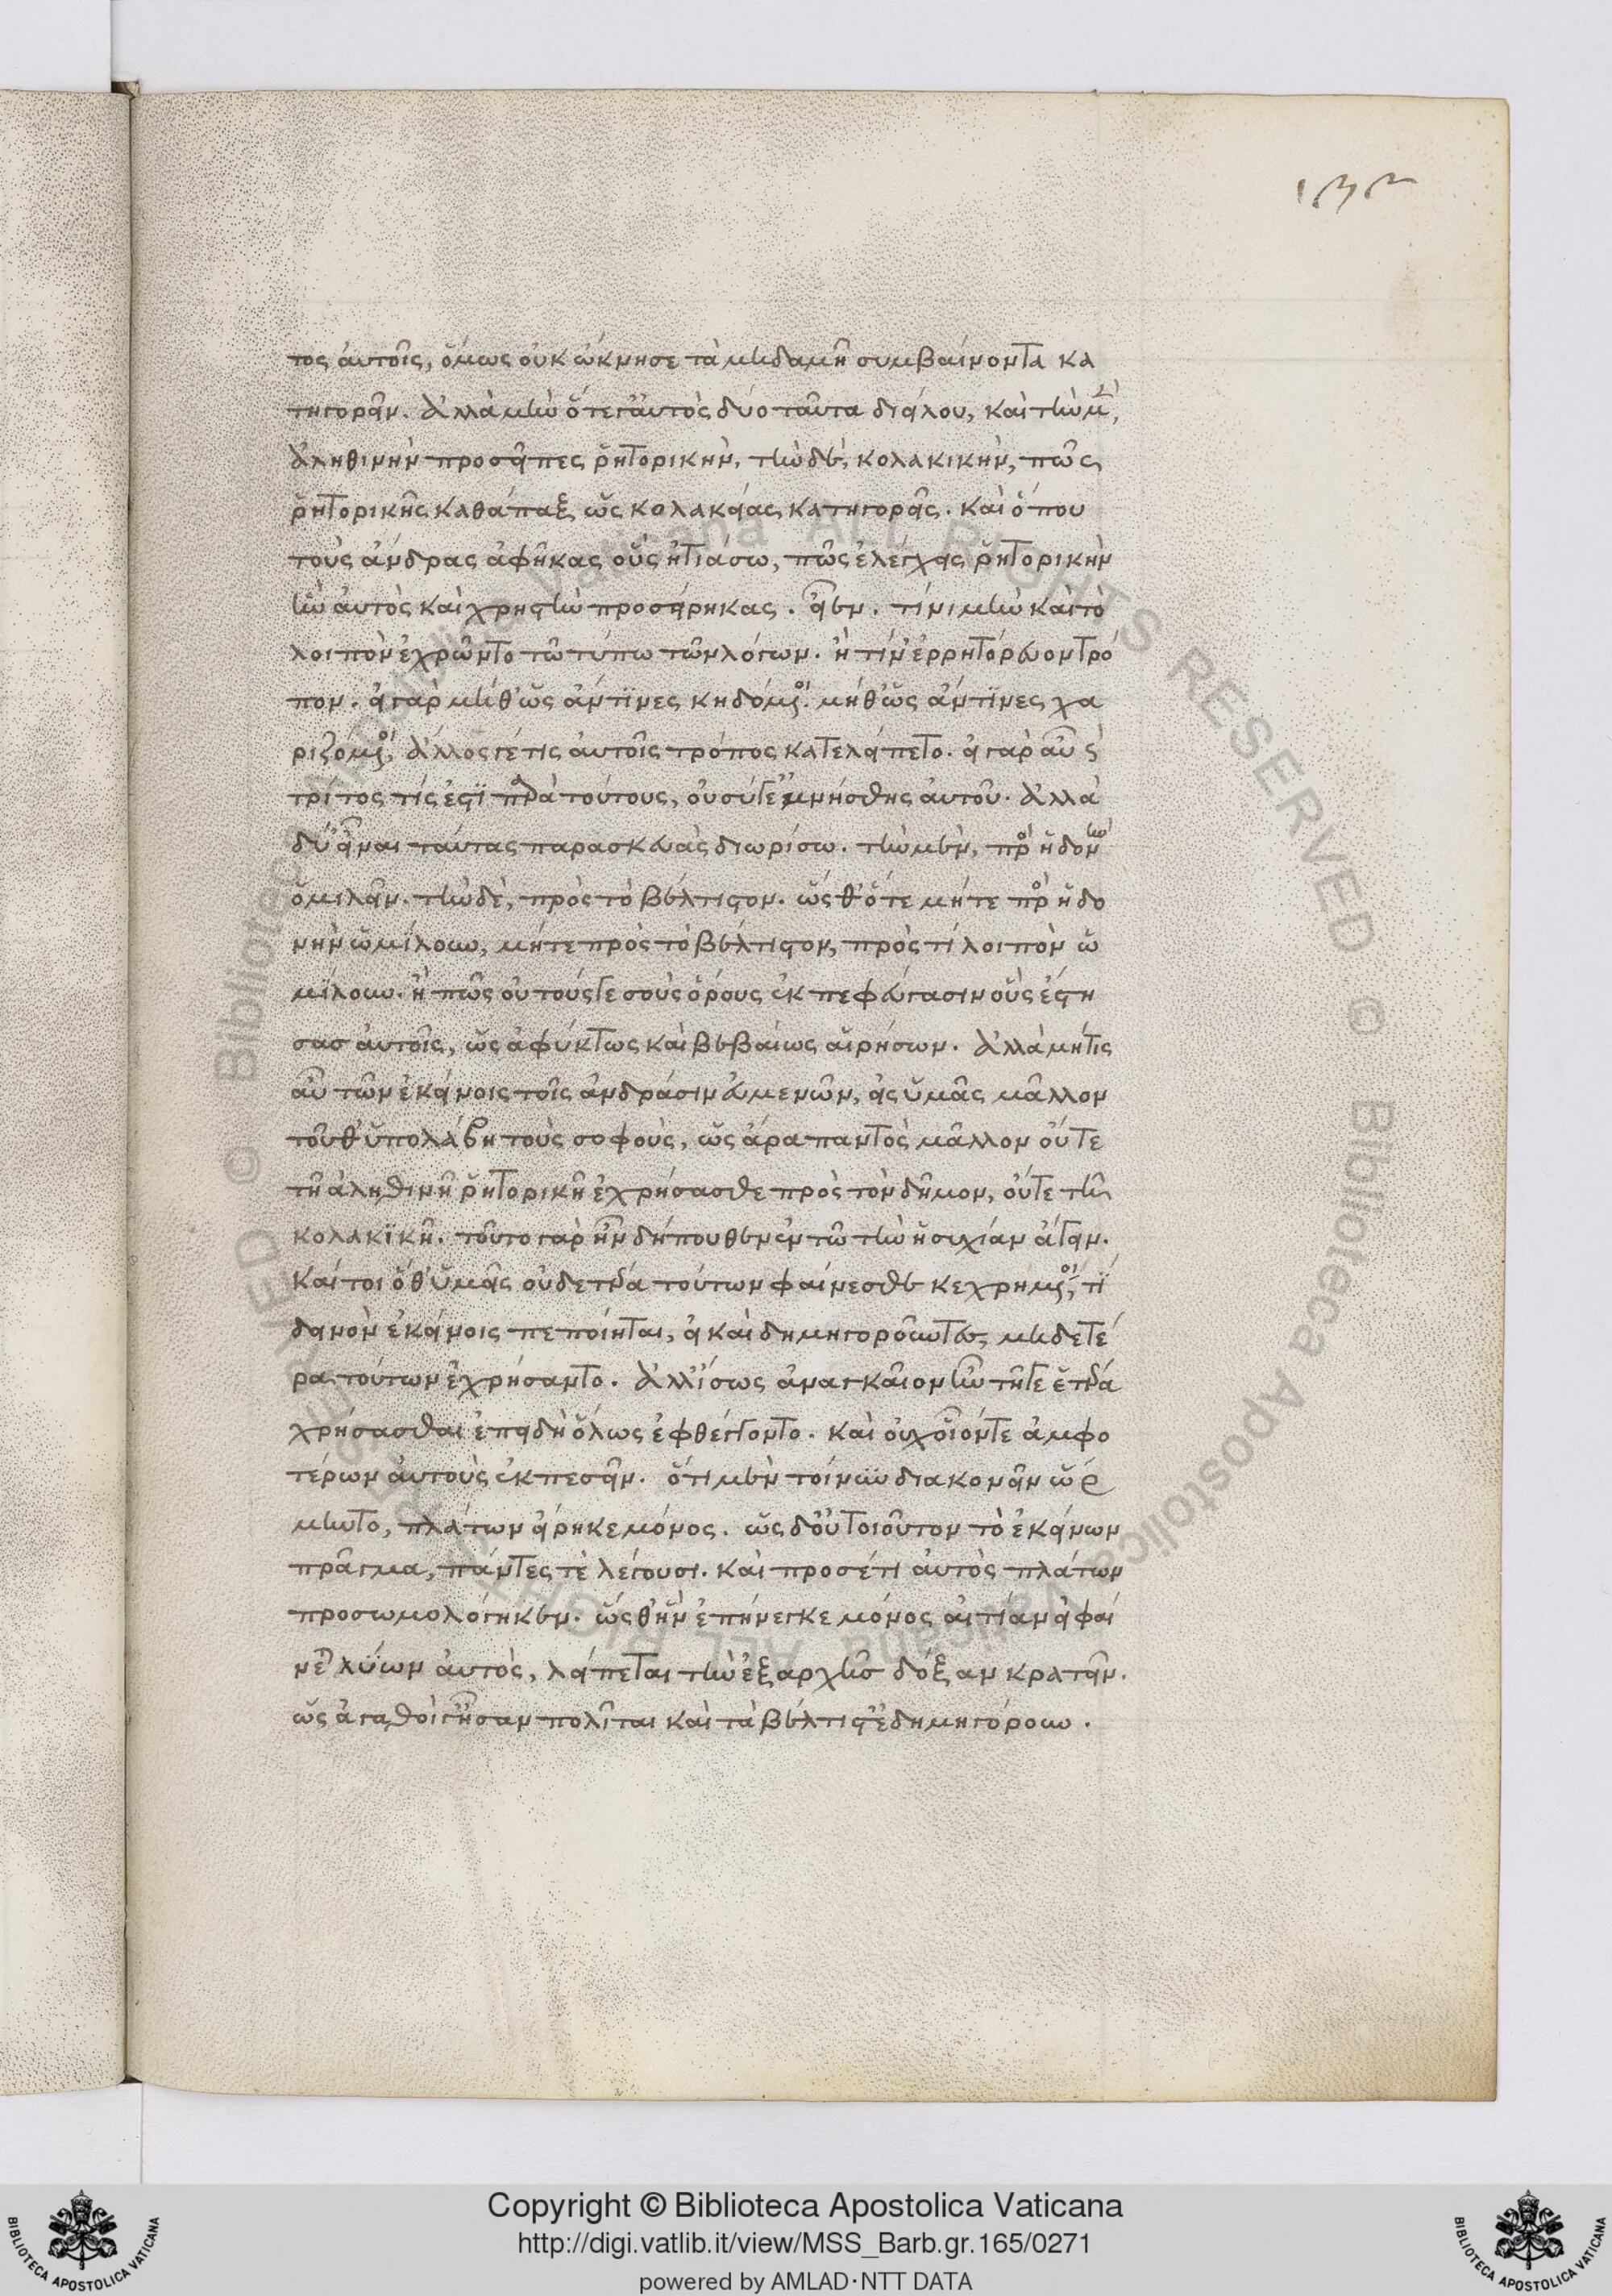 132
τος αὐτοῖς, ὅμως οὐκ ὤκνησε τὰ μηδαμῆ συμβαίνοντα κα
τηγορεῖν. ἀλλὰ μὴν ὅτε γ' αὐτὸς δύο ταῦτα διείλου, καὶ τὴν μὲν,
ἀληθινὴν προσεῖπες ῥητορικὴν, τὴν δὲ, κολακικὴν, πῶς
ῥητορικῆς καθάπαξ ὡς κολακείας κατηγορεῖς. καὶ ὅπου
τοὺς ἄνδρας ἀφῆκας οὓς ἠτιάσω, πῶς ἐλέγχεις ῥητορικὴν
ἣν αὐτὸς καὶ χρηστὴν προσείρηκας. εἶεν. τίνι μὴν καὶ τὸ
λοιπὸν ἐχρῶντο τῶ τύπω τῶν λόγων. ἢ τίν' ἐρρητόρευον τρό
πον. εἰ γὰρ μήθ' ὡς ἄν τινες κηδόμενοι. μήθ' ὡς ἄν τινες χα
ριζόμενοι, ἄλλος γέ τις αὐτοῖς τρόπος κατελείπετο. εἰ γὰρ αὖ
τρίτος τίς ἐστι παρὰ τούτους, οὐ σύ γε ἐμνήσθης αὐτοῦ. ἀλλὰ
δύ' εἶναι ταύτας παρασκευὰς διωρίσω. τὴν μὲν, πρὸς ἡδονὴν
ὁμιλεῖν. τὴν δὲ, πρὸς τὸ βέλτιστον. ὥσθ' ὅτε μήτε πρὸς ἡδο
νὴν ὡμίλουν, μήτε πρὸς τὸ βέλτιστον, πρὸς τί λοιπὸν ὡ
μίλουν. ἢ πῶς οὐ τούς γε σοὺς ὅρους ἐκπεφεύγασιν οὓς ἔστη
σασ αὐτοῖς, ὡς ἀφύκτως καὶ βεβαίως αἱρήσων. ἀλλὰ μή τις
αὖ τῶν ἐκείνοις τοῖς ἀνδράσιν εὐμενῶν, εἰς ὑμᾶς μᾶλλον
τοῦθ' ὑπολάβη τοὺς σοφοὺς, ὡς ἄρα παντὸς μᾶλλον οὔτε
τῆ ἀληθινῆ ῥητορικῆ ἐχρήσασθε πρὸς τὸν δῆμον, οὔτε τῆ
κολακικῆ. τοῦτο γὰρ ἦν δήπουθεν ἐν τῶ τὴν ἡσυχίαν ἄγειν.
καίτοι ὅθ' ὑμεῖς οὐδετέρα τούτων φαίνεσθε κεχρημένοι, τί
δεινὸν ἐκείνοις πεποίηται, εἰ καὶ δημηγοροῦντες μηδετέ
ρα τούτων ἐχρήσαντο. ἀλλ' ἴσως ἀναγκαῖον ἦν τῆ γε ἑτέρα
χρήσασθαι ἐπειδὴ ὅλως ἐφθέγγοντο. καὶ οὐχ οἷόν τε ἀμφο
τέρων αὐτοὺς ἐκπεσεῖν. ὅτι μὲν τοίνυν διακονεῖν ὥρ
μηντο, πλάτων εἴρηκε μόνος. ὡς δ' οὐ τοιοῦτον τὸ ἐκείνων
πρᾶγμα, πάντες τὲ λέγουσι. καὶ προσέτι αὐτὸς πλάτων
προσωμολόγηκεν. ὥσθ' ἣν ἐπήνεγκε μόνος αἰτίαν εἰ φαί
νετ' λύων αὐτὸς, λείπεται τὴν ἐξαρχῆσ δόξαν κρατεῖν.
ὡς ἀγαθοί γ' ἦσαν πολῖται καὶ τὰ βέλτιστ' ἐδημηγόρουν.
© Biblioteca Apostolica Vaticana ALL RIGHTS RESERVED
Copyright © Biblioteca Apostolica Vaticana
http://digi.vatlib.it/view/MSS_Barb.gr.165/0271
powered by AMLAD·NTT DATA
BIBLIOTECA APOSTOLICA VATICANA
BIBLIOTECA APOSTOLICA VATICANA